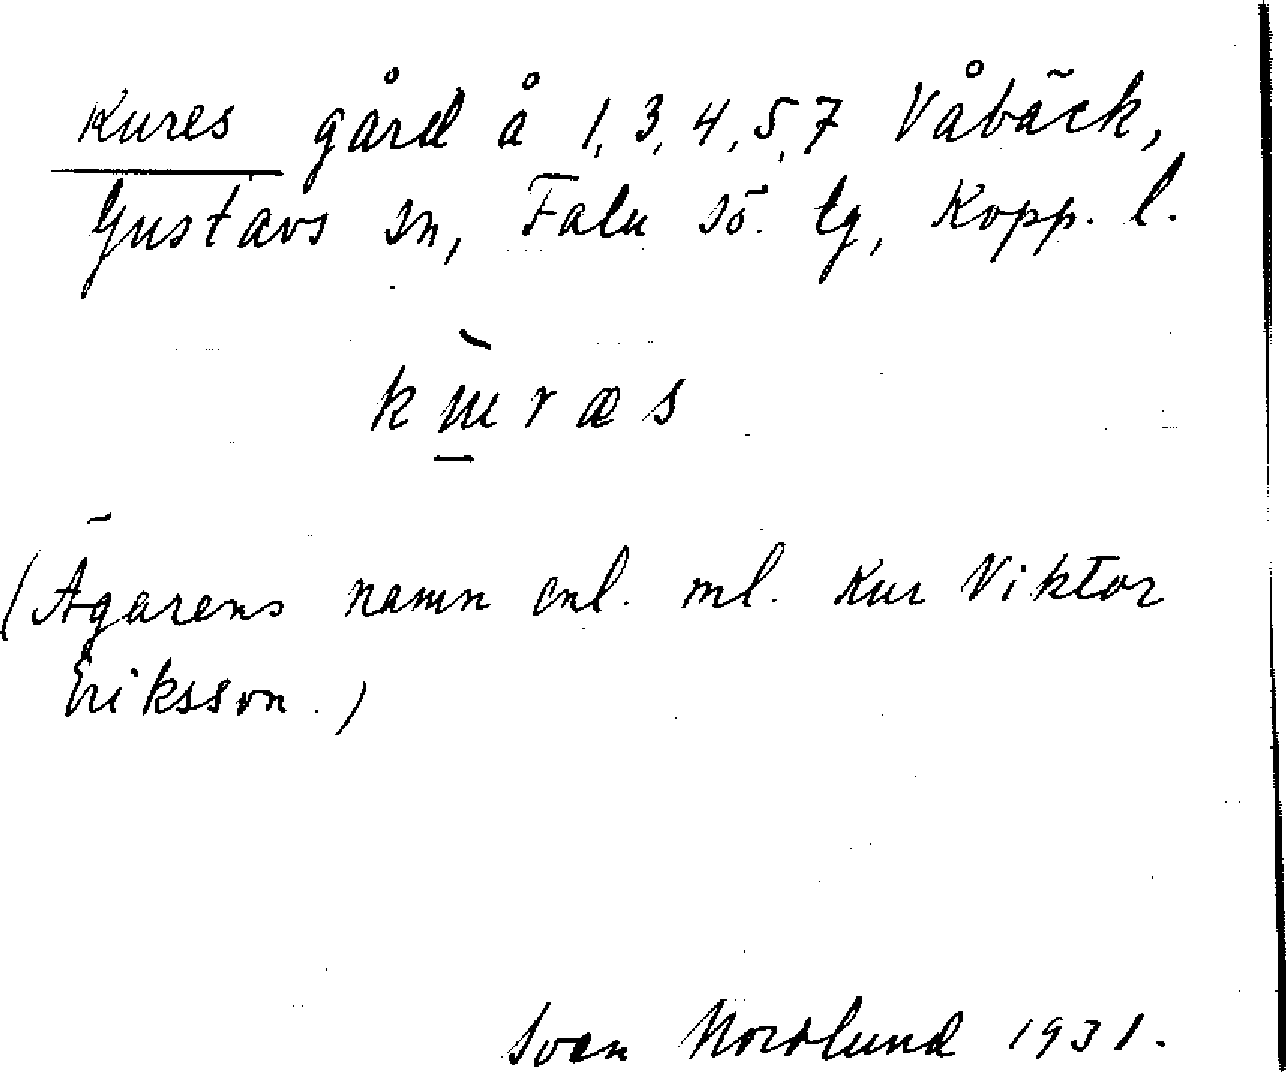 Kures gård å 1, 3, 4, 5, 7 Våbäck,
Gustavs sn, Falu sö. lg, Kopp. l.
(Ägarens namn enl. ml. Kur Viktor
Eriksson.)
Sven Nordlund 1931.